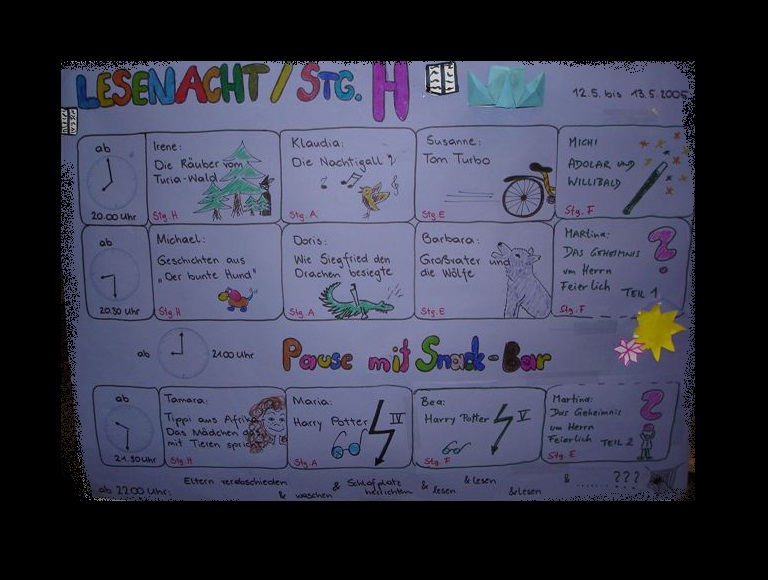 LESENACHT / STG. H
12.5. bis 13.5.2005
ab
20.00 Uhr
Irene:
Die Räuber vom
Turia-Wald
Stg. H
Klaudia:
Die Nachtigall
Stg. A
Susanne:
Tom Turbo
Stg. E
MICHI
ADOLAR UND
WILLIBALD
Stg. F
ab
20.30 Uhr
Michael:
Geschichten aus
"Der bunte Hund"
Stg. H
Doris:
Wie Siegfried den
Drachen besiegte
Stg. A
Barbara:
Großvater und
die Wölfe
Stg. E
MARTINA:
DAS GEHEIMNIS
um Herrn
Feierlich TEIL 1
Stg. F
ab 21.00 Uhr
Pause mit Snack-Bar
ab
21.30 Uhr
Tamara:
Tippi aus Afrika
Das Mädchen das
mit Tieren spricht
Stg. H
Maria:
Harry Potter IV
Stg. A
Bea:
Harry Potter V
Stg. F
Martina:
Das Geheimnis
um Herrn
Feierlich TEIL 2
Stg. E
ab 22.00 Uhr: Eltern verabschieden & waschen & Schlafplatz herrichten & lesen & lesen & lesen & ........ ???